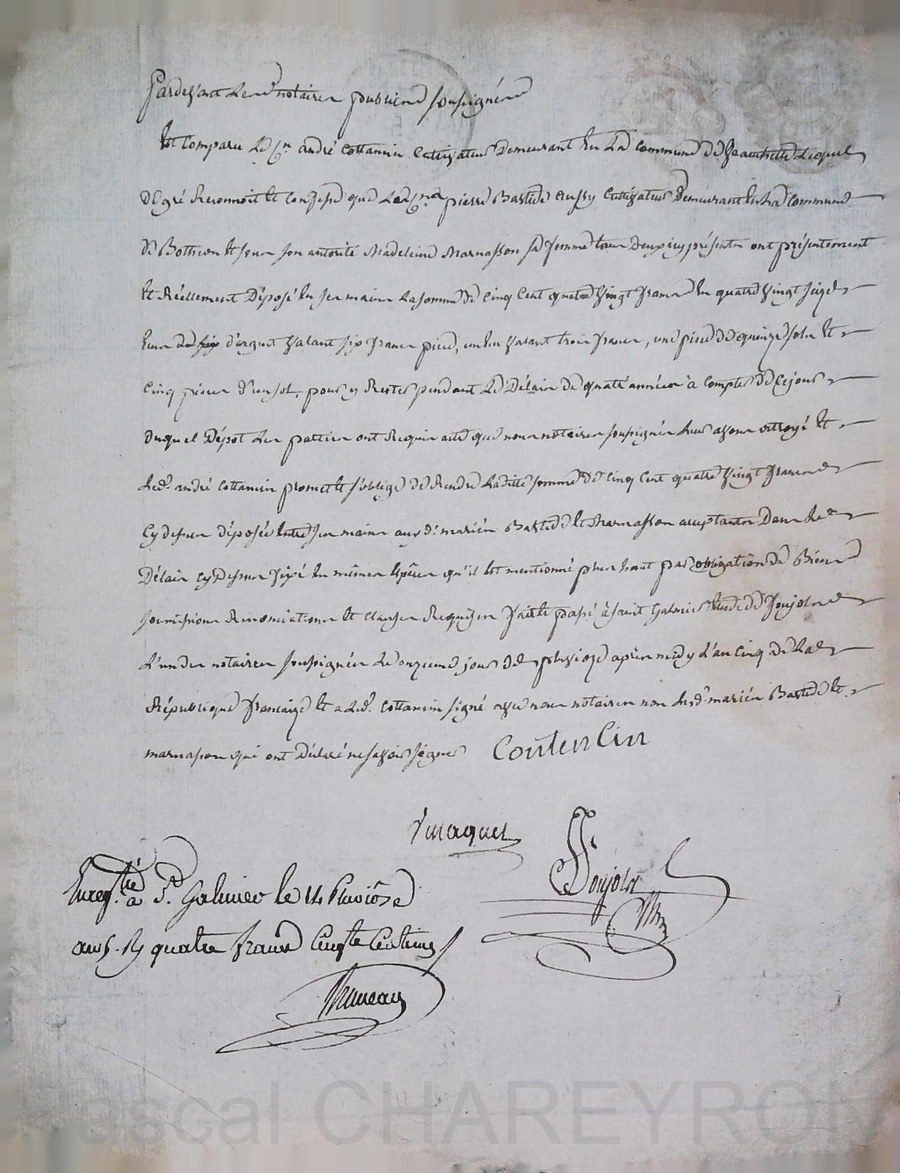 Pardevant Les notaires publics soussignés
Est Comparu Le Cn andré Cottancin Cultivateur Demeurant En La Commune De Lequel
De gré Reconnoit et Confesse que Le Cn pierre Bastide aussy Cultivateur Demeurant En La Commune
De Bothéon et sous son autorité Madeleine Marnasson sa femme tous Deux icy présents ont présentement
Et Réellement Déposé En ses mains La somme De Cinq Cent quatre Vingt francs En quatre Vingt seize
Ecus De six d'argent Valant six francs piece, un Ecu Valant trois francs, une piece De quinze sols Et
Cinq pièces d'un sol, pour y Rester pendant Le Délais De quatre années à Compter De Ce jour
Duquel Dépot Les parties ont Requis acte que nous notaires soussignés Leur avons octroyé Et
Led. andré Cottancin promet et s'oblige De Rendre Ladite somme De Cinq Cent quatre Vingt francs
Cy dessus déposée Entre ses mains auxd. mariés Bastide et Marnasson acceptants Dans Le
Délais Cy Dessus fixé En mêmes Espèces qu'il Est mentionné plus haut par obligation De Biens
soumissions Renonciations et Clauses Requises fait et passé à saint Galmier Etude De Poujols
L'un des notaires soussignés Le onzieme jour De pluviose après midy L'an Cinq De La
République française Et a Led. Cottancin signé avec nous notaires non Lesd. mariés Bastide Et
marnasson qui ont Déclaré ne savoir signer Coutencin
Poujols
Enregtré à St. Galmier le 14 Pluviôse
an 5. Rç quatre francs Cinqte Centimes
Pascal CHAREYRON